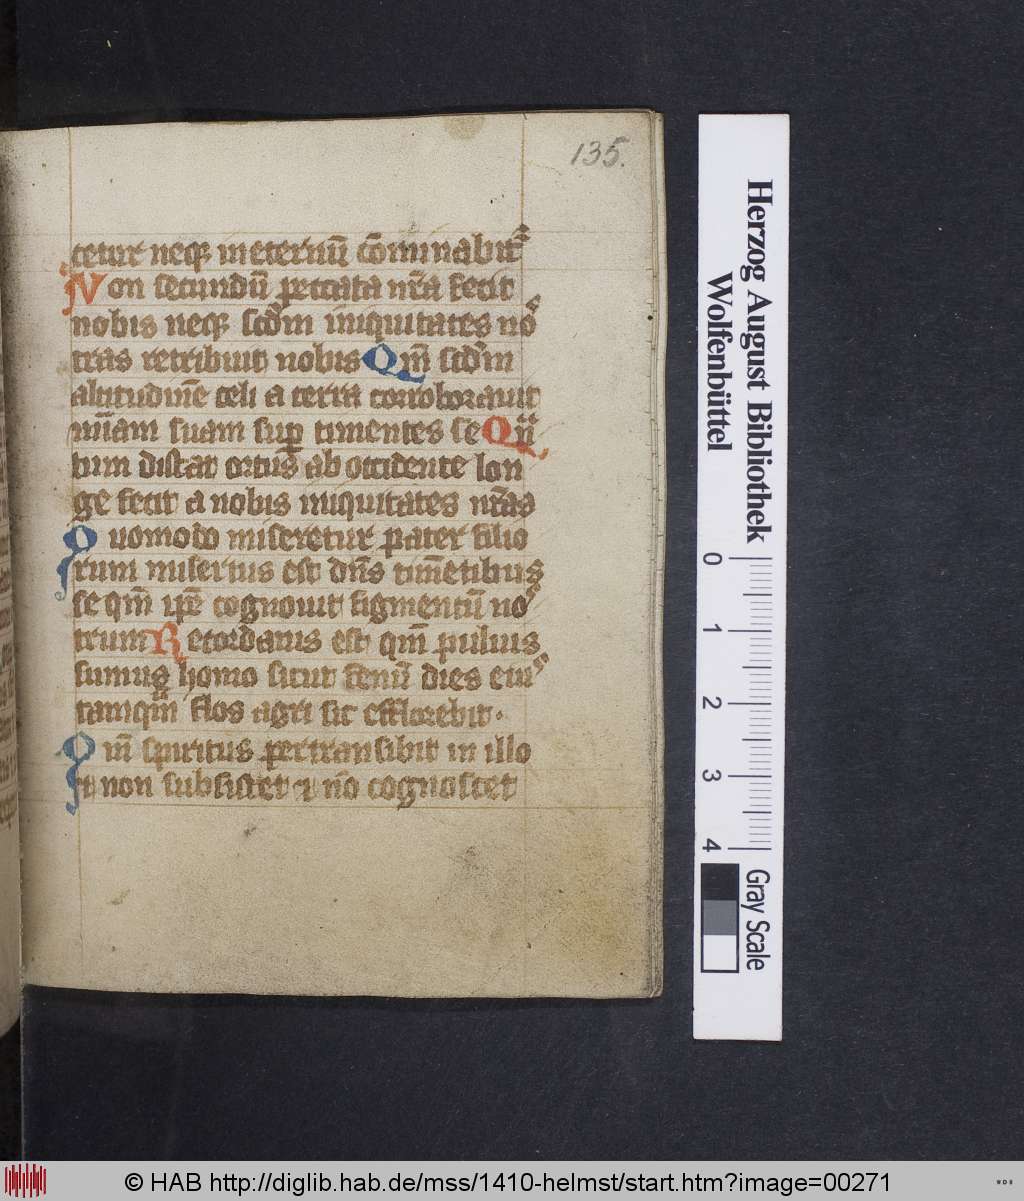 135.
tetur neq; ineternū cōminabit᷑
Non secundū peccata nr̄a fecit
nobis neq; scdm̄ iniquitates no
tras retribuit nobis Qm̄ scdm̄
altitudinē celi a terra corroborauit
miām suam sup timentes se Qn̄
tum distat ortus ab occidente lon
ge fecit a nobis iniquitates nr̄as
Quomodo miseretur pater filio
rum misertus est dn̄s timētibus
se qm̄ ip̄e cognouit figmentū no
trum Recordatus est qm̄ puluis
sumus homo sicut fenū dies eiu
tamqm̄ flos agri sic efflorebit·
Qm̄ spiritus pertransibit in illo
et non subsistet ⁊ nō cognoscet
Herzog August Bibliothek
Wolfenbüttel
0 1 2 3 4
Gray Scale
© HAB http://diglib.hab.de/mss/1410-helmst/start.htm?image=00271